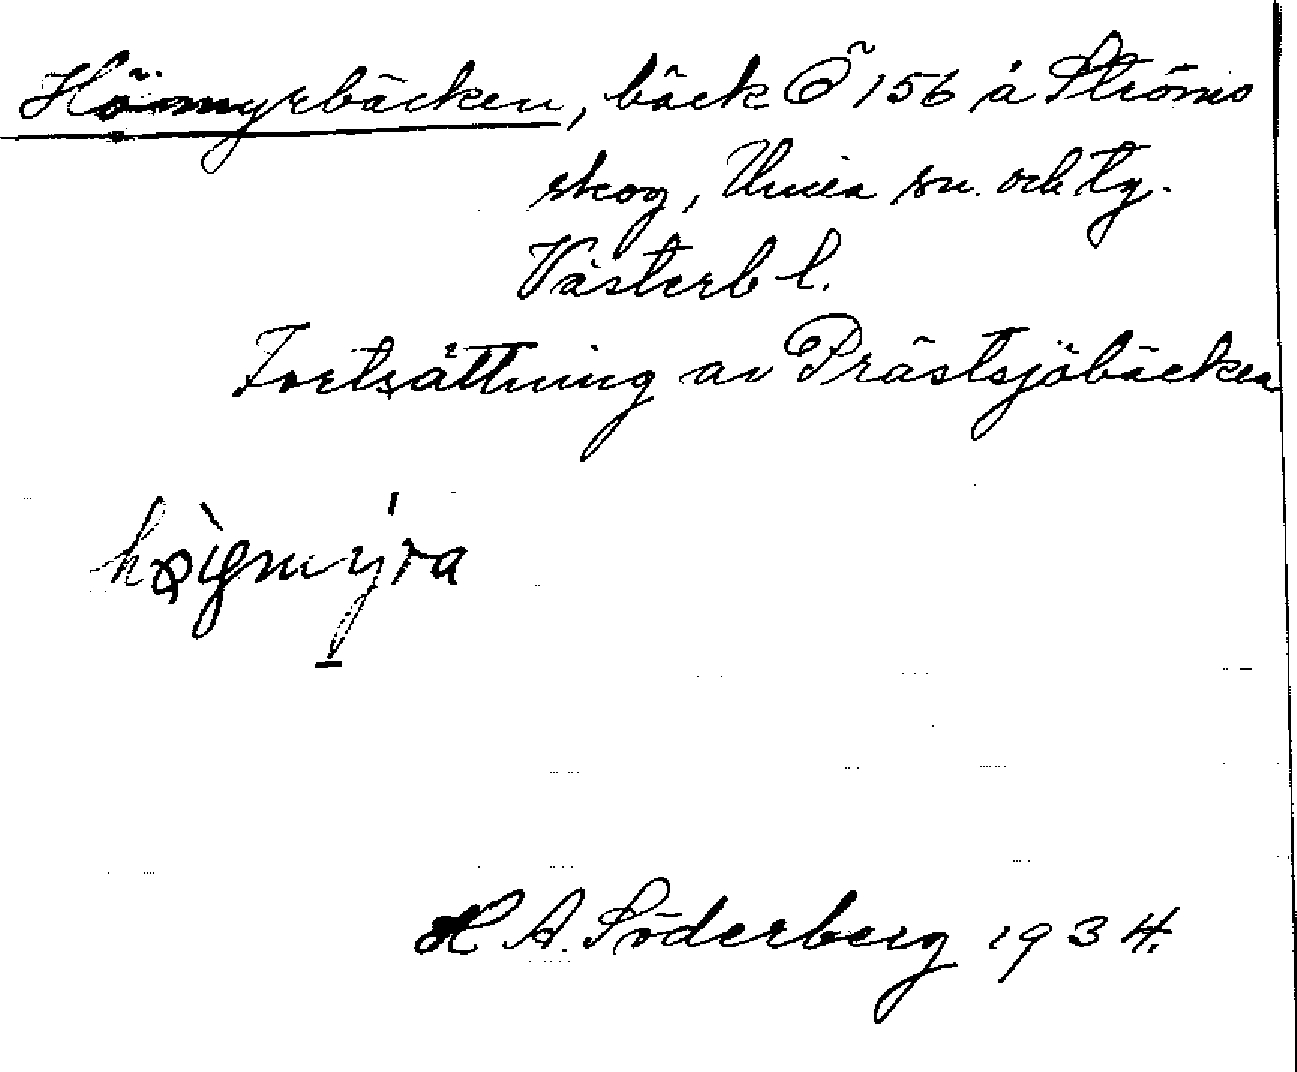 Hömyrbäcken, bäck Ö 156 å Ströms
skog, Umeå sn. och tg.
Västerb l.
Fortsättning av Prästsjöbäcken
H A. Söderberg 1934.